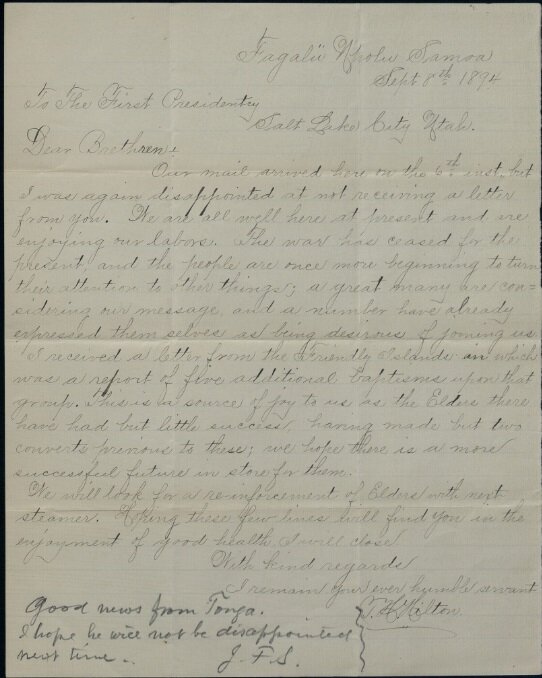 Fagalii Upolu Samoa
Sept 8th 1894
To The First Presidentcy
Salt Lake City Utah.
Dear Brethren:
Our mail arrived here on the 6th inst, but
I was again disappointed at not receiving a letter
from you. We are all well here at present and are
enjoying our labors. The war has ceased for the
present, and the people are once more beginning to turn
their attention to other things; a great many are con-
sidering our message, and a number have already
expressed them selves as being desirous of joining us.
I received a letter from the Friendly Islands in which
was a report of five additional baptisms upon that
group. This is a source of joy to us as the Elders there
have had but little success, having made but two
converts previous to these; we hope there is a more
successful future in store for them.
We will look for a re-inforcement of Elders with next
steamer. Hoping these few lines will find you in the
enjoyment of good health, I will close
With kind regards
I remain your ever humble servant
T. H. Hilton
Good news from Tonga.
I hope he will not be disappointed
next time..
J. F. S.